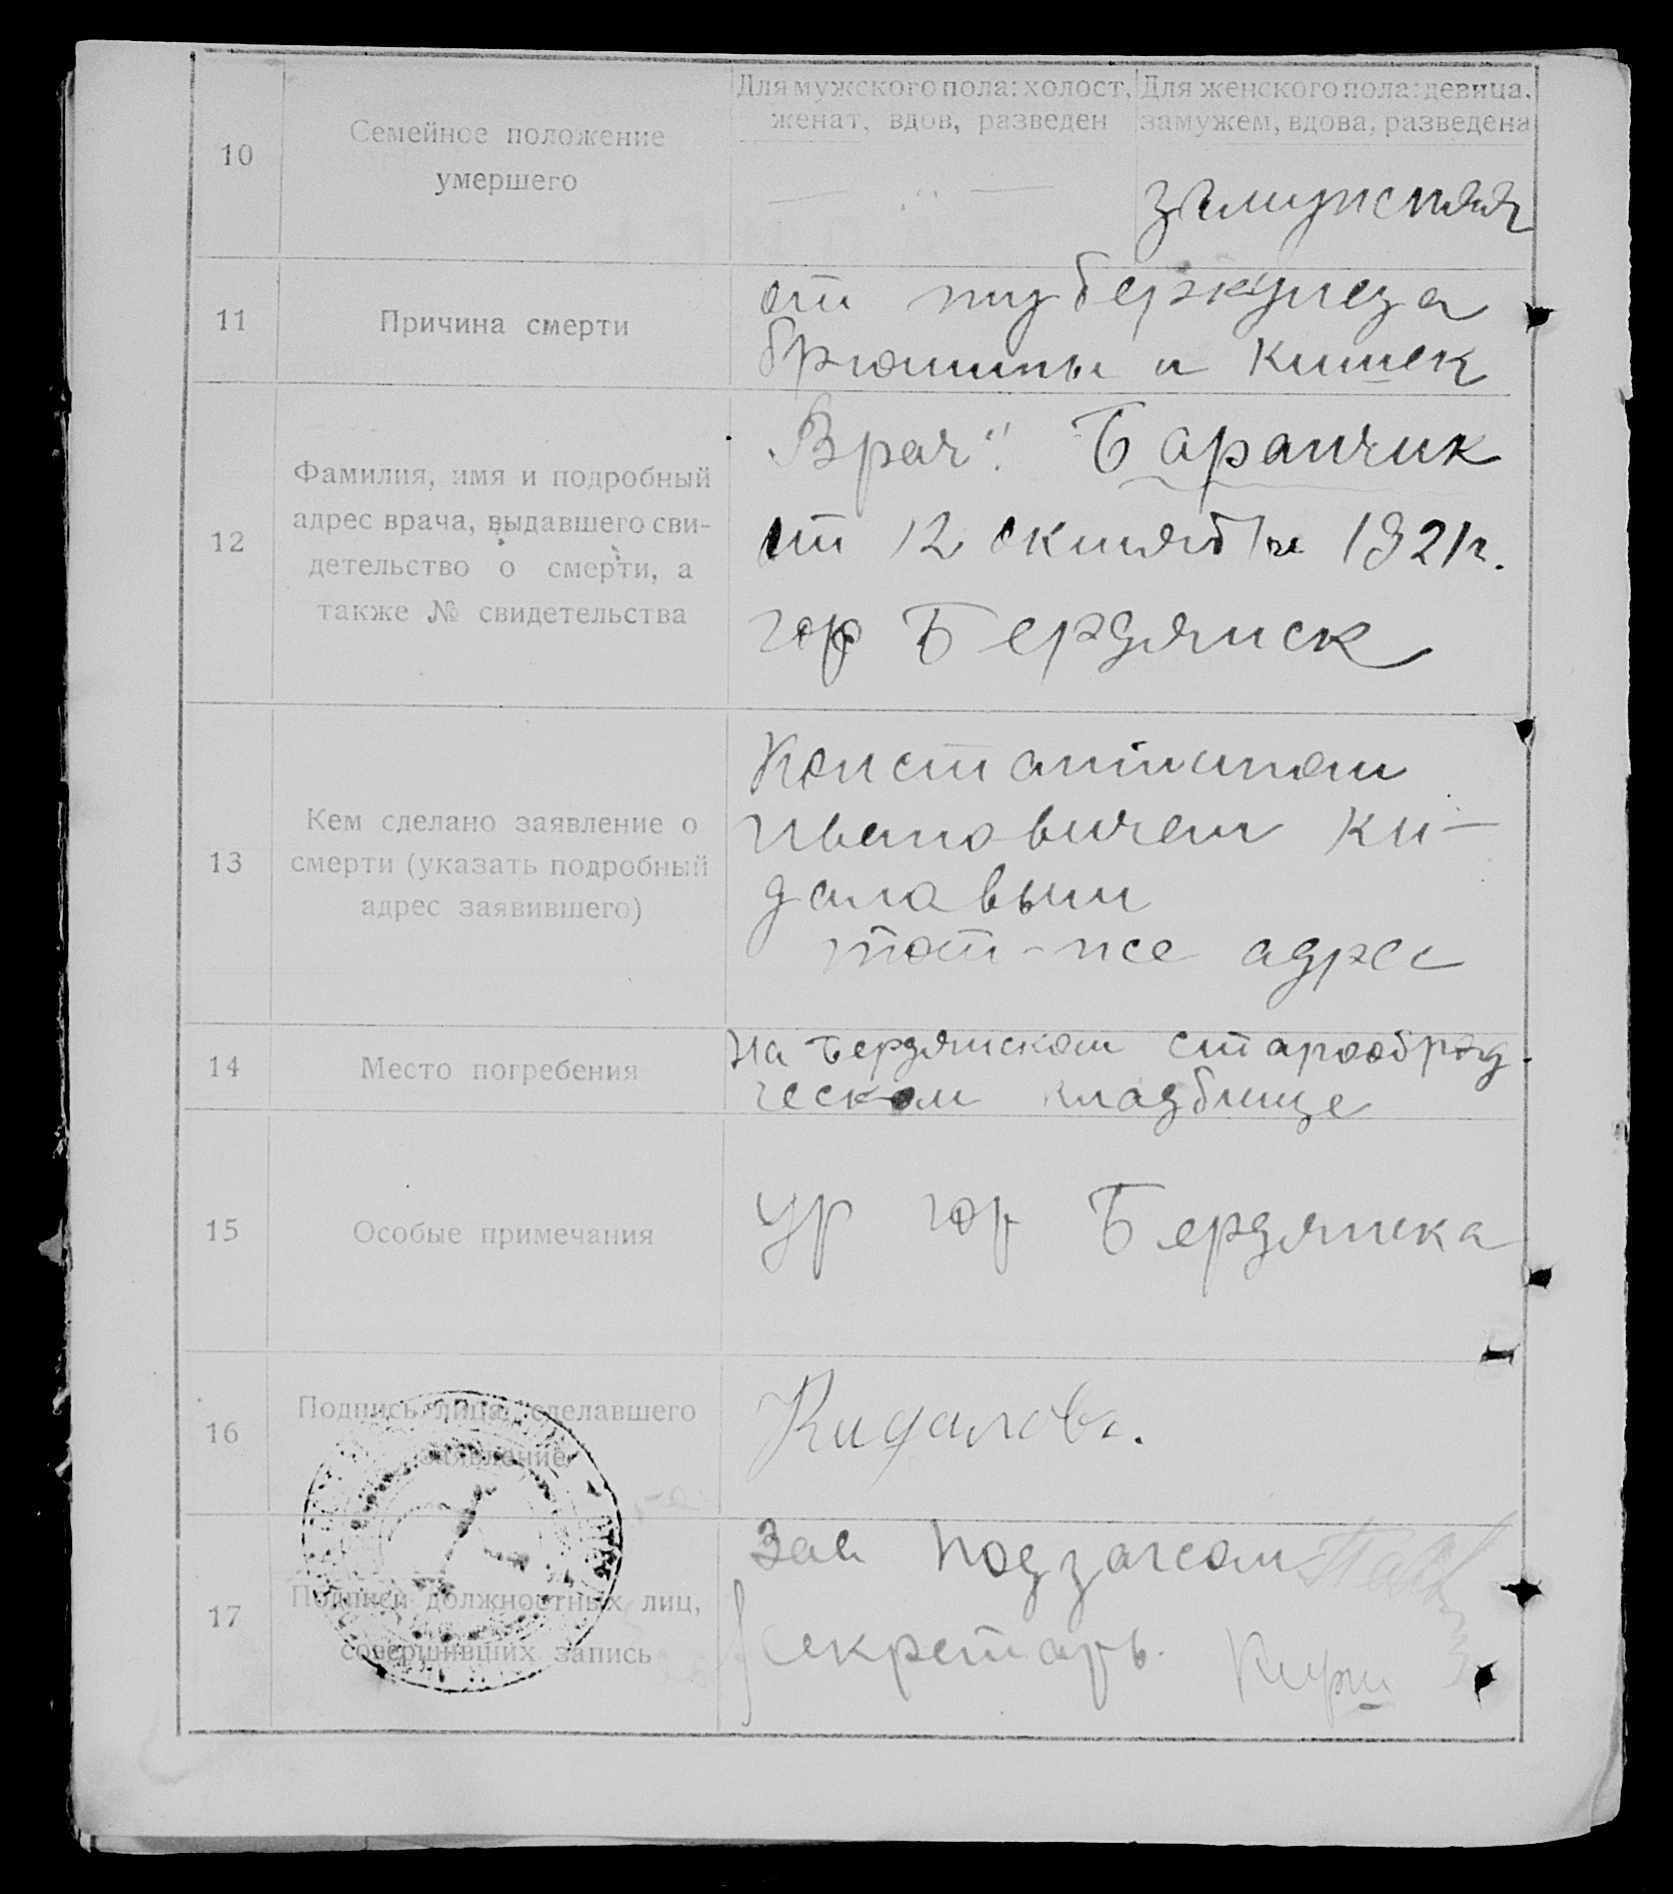 10
Семейное положение
умершего
Для мужского пола: холост,
женат, вдов, разведен
Для женского пола: девица,
замужем, вдова, разведена
замужняя
11
Причина смерти
от туберкулеза
брюшины и кишек
12
Фамилия, имя и подробный
адрес врача, выдавшего сви-
детельство о смерти, а
также № свидетельства
Врач": Баранчик
от 12 октября 1921г.
гор Бердянск
13
Кем сделано заявление о
смерти (указать подробный
адрес заявившего)
Константином
Ивановичем Ки-
даловым
тот-же адрес
14
Место погребения
на Бердянском старообряд-
ческом кладбище
15
Особые примечания
ур гор Бердянска
16
Подпись лица, сделавшего
заявление
Кидалов.
17
Подписи должностных лиц,
совершивших запись
Зав подзагсом
Секретарь